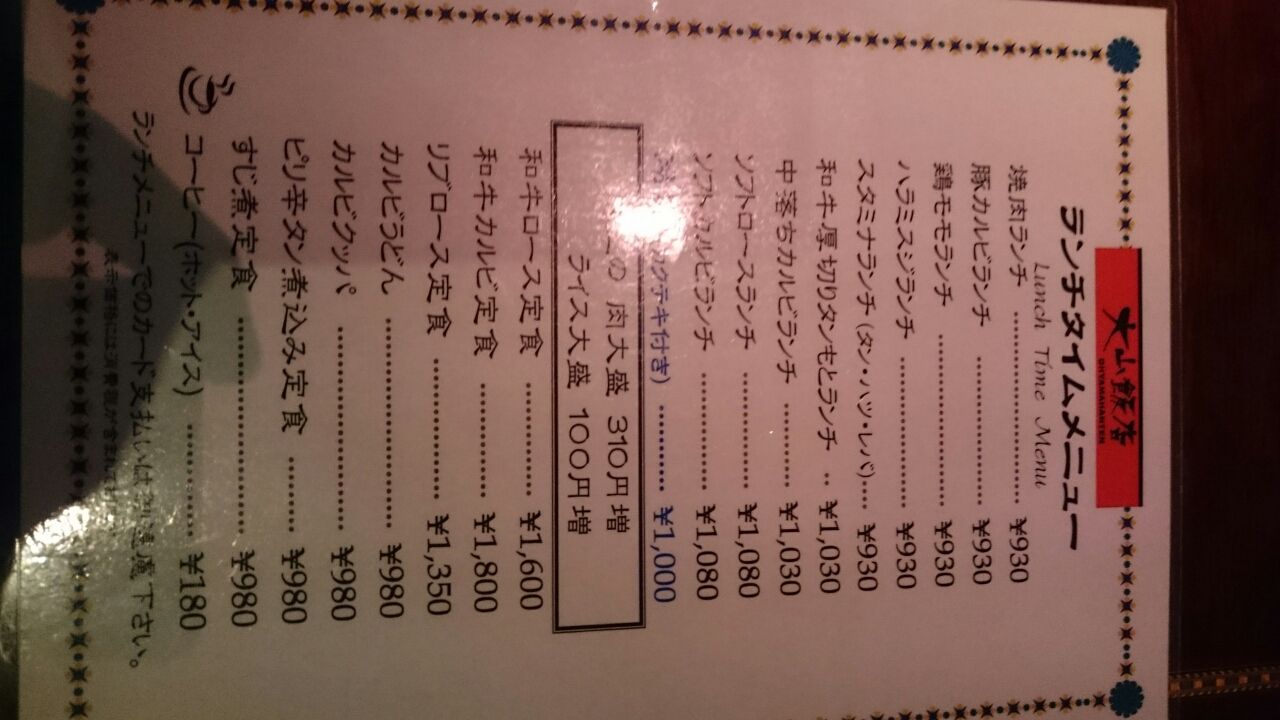 大山飯店
OHYAMAHANTEN
ランチタイムメニュー
Lunch Time Menu
焼肉ランチ ¥930
豚カルビランチ ¥930
鶏モモランチ ¥930
ハラミスジランチ ¥930
スタミナランチ(タン・ハツ・レバ) ¥930
和牛厚切りタンもとランチ ¥1,030
中落ちカルビランチ ¥1,030
ソフトロースランチ ¥1,080
ソフトカルビランチ ¥1,080
クテキ付き) ¥1,000
の 肉大盛 310円増
ライス大盛 100円増
和牛ロース定食 ¥1,600
和牛カルビ定食 ¥1,800
リブロース定食 ¥1,350
カルビうどん ¥980
カルビクッパ ¥980
ピリ辛タン煮込み定食 ¥980
すじ煮定食 ¥980
コーヒー(ホット・アイス) ¥180
ランチメニューでのカード支払いはご遠慮下さい。
表示価格には消費税が含まれて